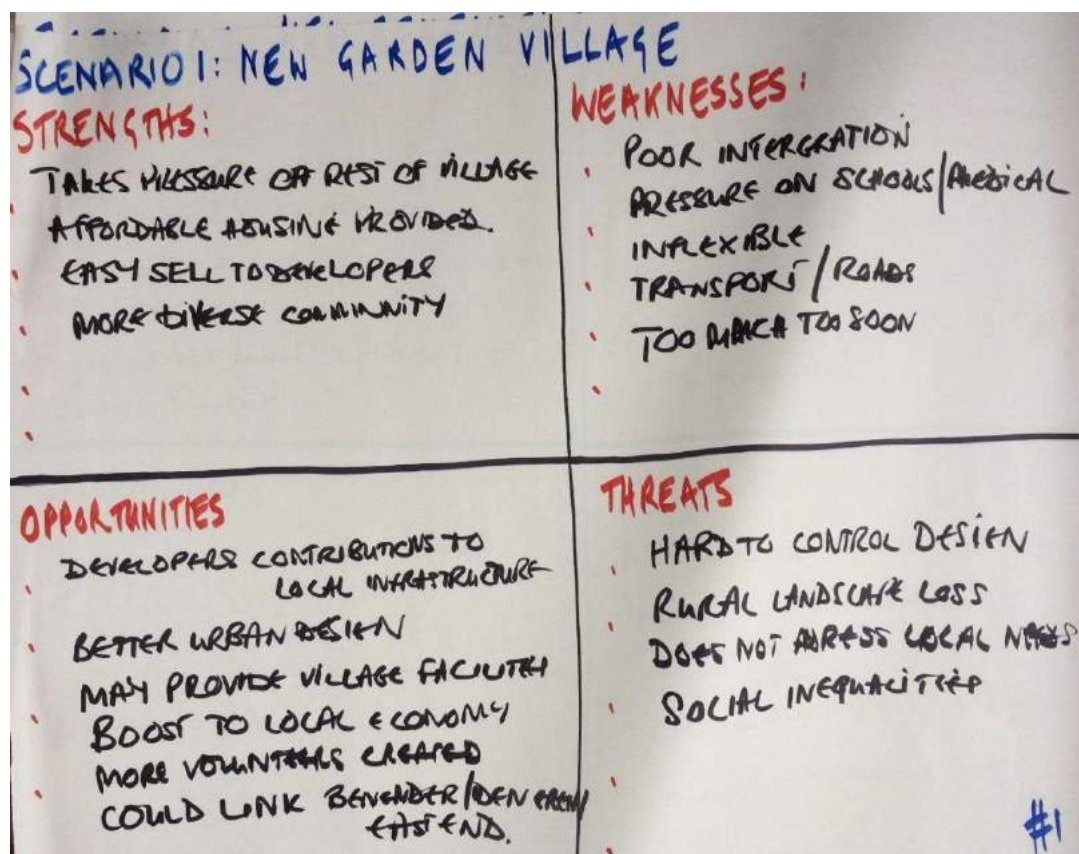 SCENARIO 1: NEW GARDEN VILLAGE
STRENGTHS:
TAKES PRESSURE OFF REST OF VILLAGE
AFFORDABLE HOUSING PROVIDED.
EASY SELL TO DEVELOPERS
MORE DIVERSE COMMUNITY
WEAKNESSES:
POOR INTERGRATION
PRESSURE ON SCHOOLS/MEDICAL
INFLEXIBLE
TRANSPORT/ROADS
TOO MUCH TOO SOON
OPPORTUNITIES
DEVELOPERS CONTRIBUTIONS TO
LOCAL INFRASTRUCTURE
BETTER URBAN DESIGN
MAY PROVIDE VILLAGE FACILITIES
BOOST TO LOCAL ECONOMY
MORE VOLUNTEERS CREATED
COULD LINK BENENDEN/
EAST END.
THREATS
HARD TO CONTROL DESIGN
RURAL LANDSCAPE LOSS
DOES NOT ADRESS LOCAL NEEDS
SOCIAL INEQUALITIES
#1